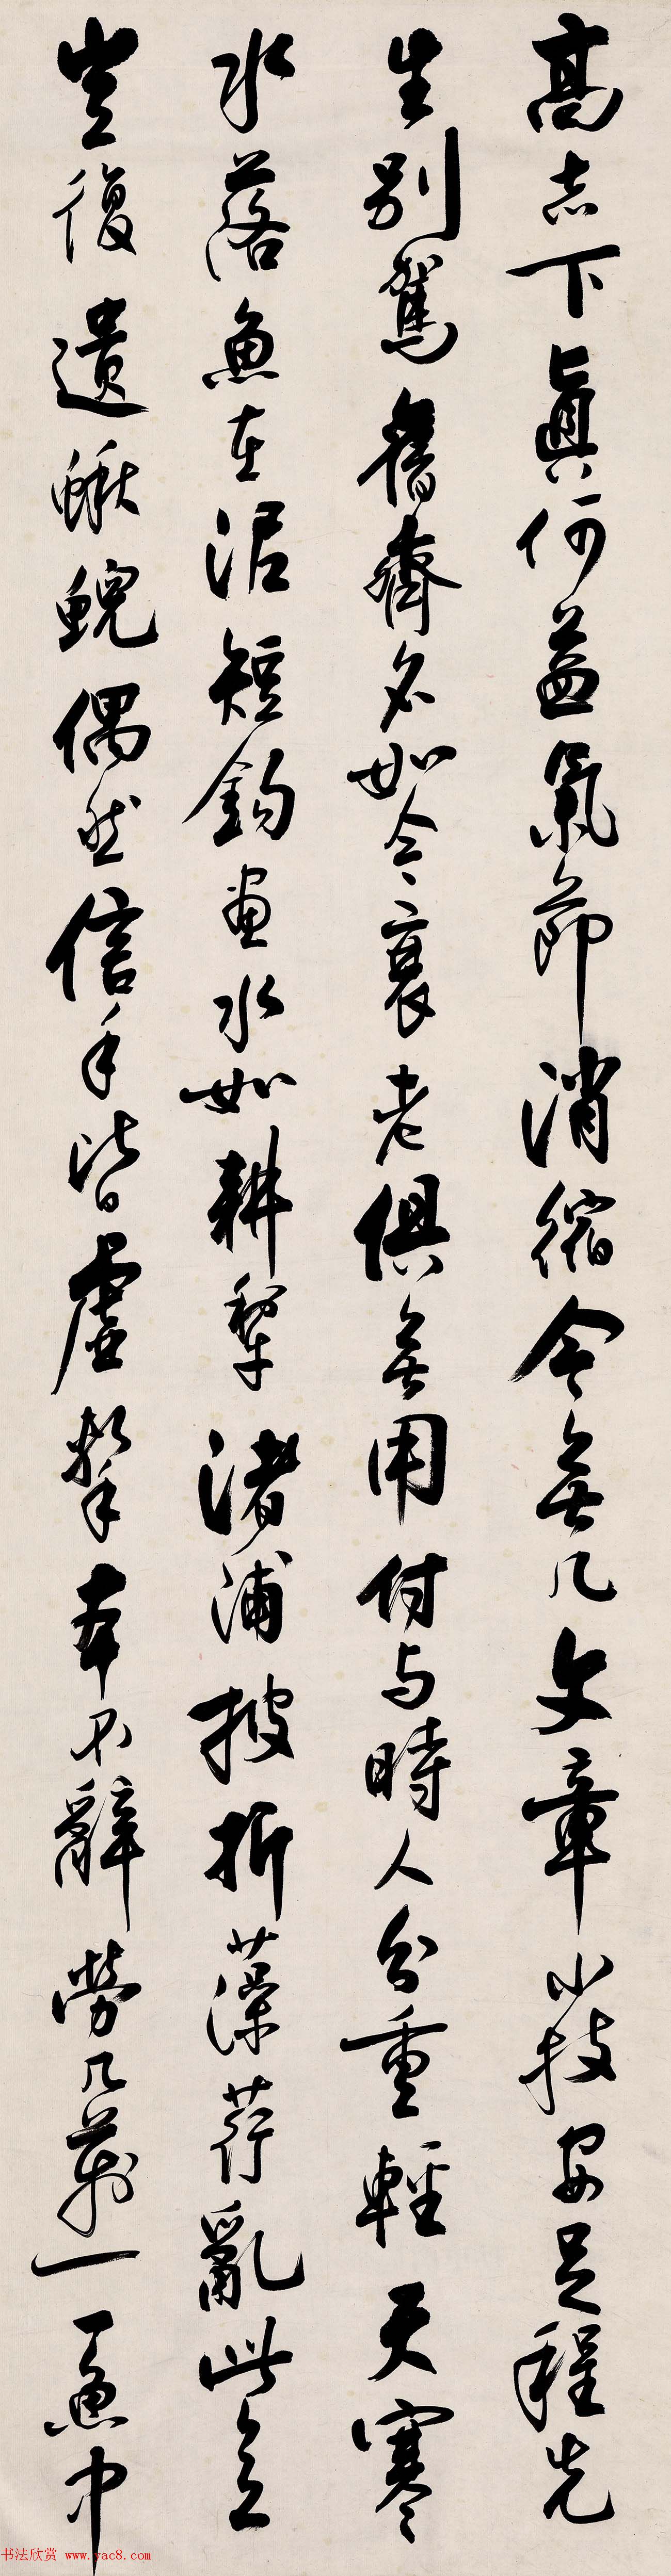 高志下真何益氣節消縮今無几文章小技安足程先
生別駕舊齊名如今衰老俱無用付與時人分重輕天寒
水落魚在泥短鉤畫水如耕犁渚浦披折藻荇亂此意
豈復遺鰍鯢偶然信手皆虛擊本不辭勞几萬一一魚中
书法欣赏 www.yac8.com